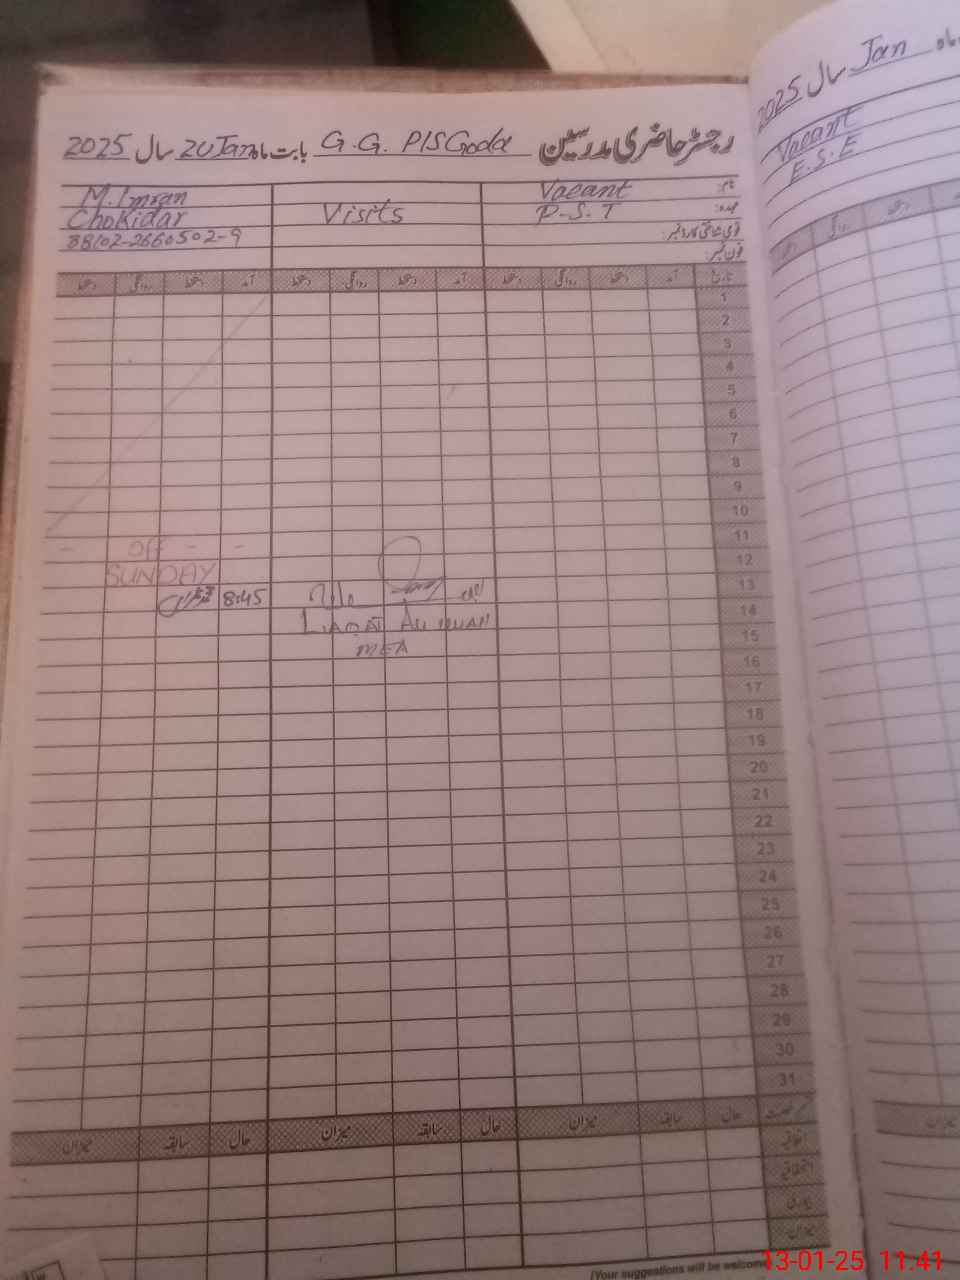 رجسٹر حاضری مدرسین G.G. P/S Goda بابت ماہ Jan سال 2025
نام: Vacant
M. Imran
عہدہ: P-S.T Visits Chokidar
قومی شناختی کارڈ نمبر: 88102-2660502-9
فون نمبر:
تاریخ آمد دستخط روانگی دستخط آمد دستخط روانگی دستخط آمد دستخط روانگی دستخط
1
2
3
4
5
6
7
8
9
10
11 - - Off -
12 SUNDAY
13 8:45
14 LIAQAT ALI
15 MEA
16
17
18
19
20
21
22
23
24
25
26
27
28
29
30
31
حال سابقہ میزان حال سابقہ میزان حال سابقہ میزان
اتفاقیہ
میزان
(Your suggestions will be welcome
سال Jan 2025
Vacant
E.S.E
13-01-25 11:41